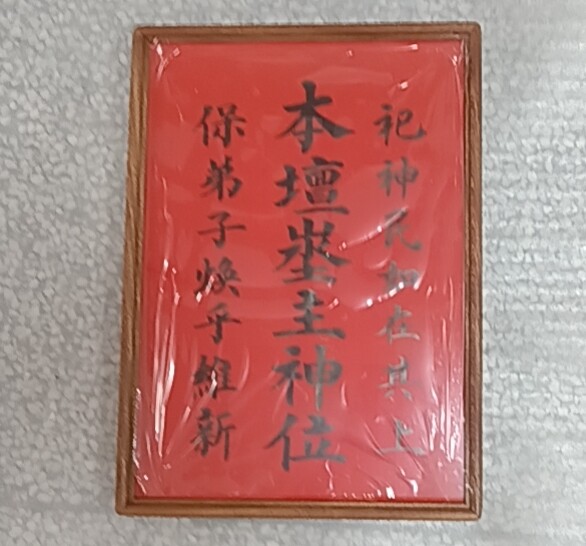 祀神民如在其上
本壇主神位
保弟子煥乎維新